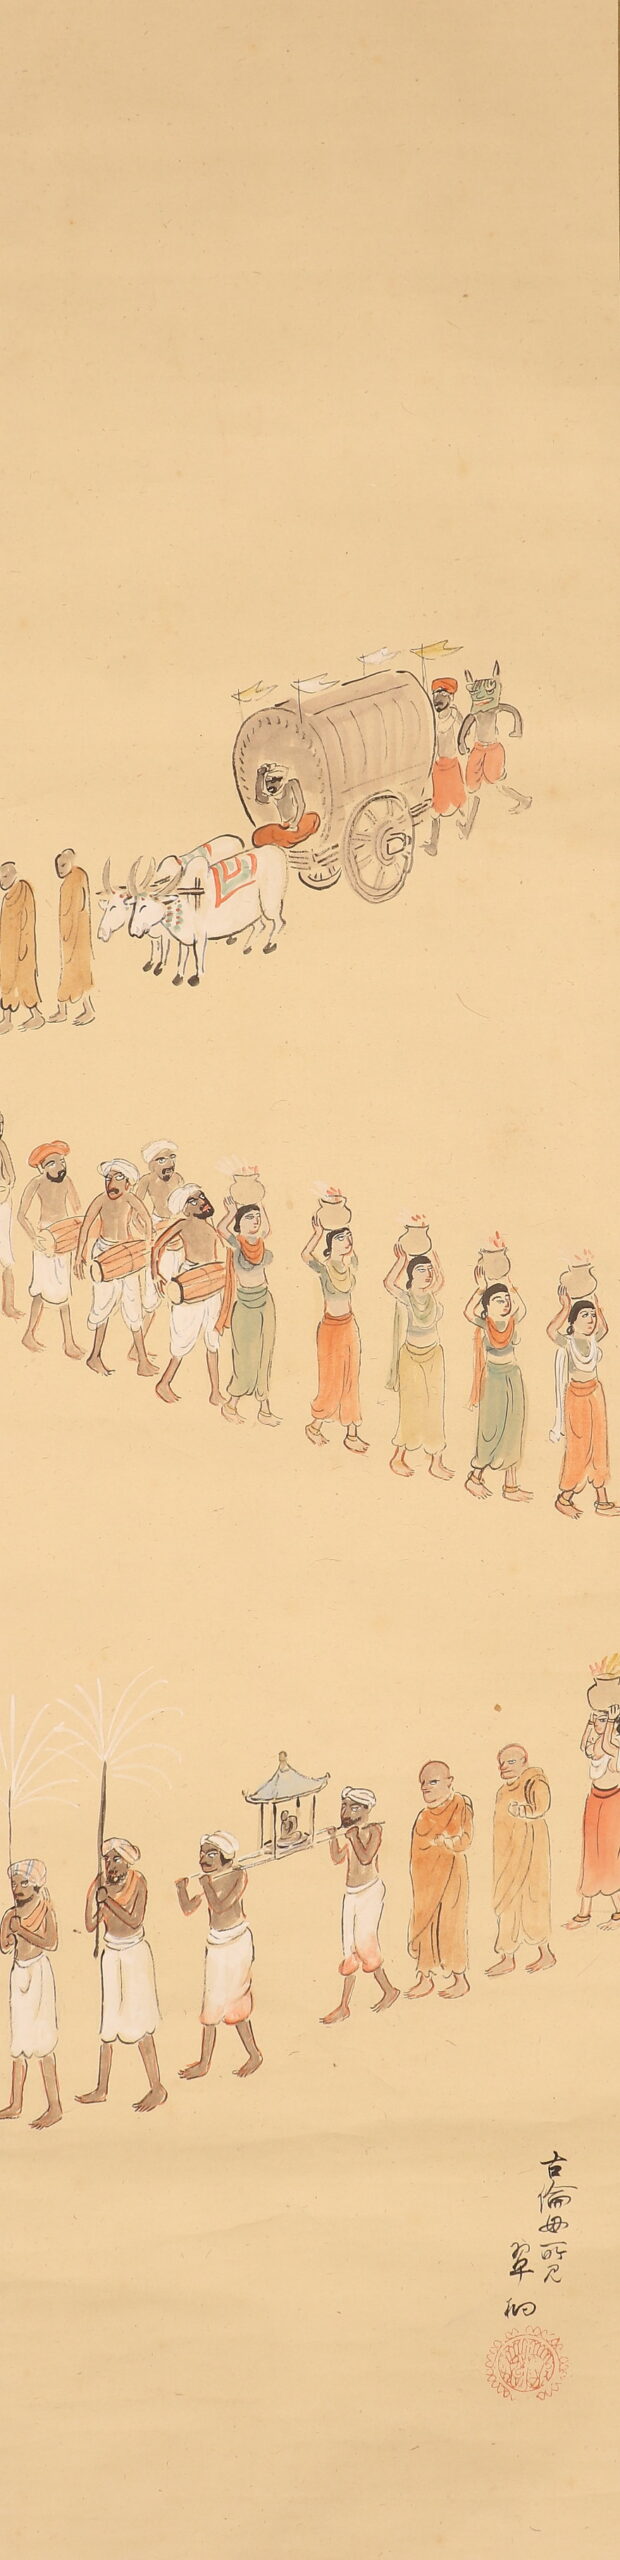 古倫母所見
翠梱